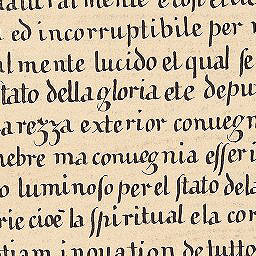 ed incorruptibile per
almente lucido el qual ſe
ſtato della gloria et e depu
arezza exterior conuegn
nebre ma conuegnia eſſer i
o luminoſo per el ſtato dela
rie cioe la ſpiritual e la cor
tiam inouation de tutto